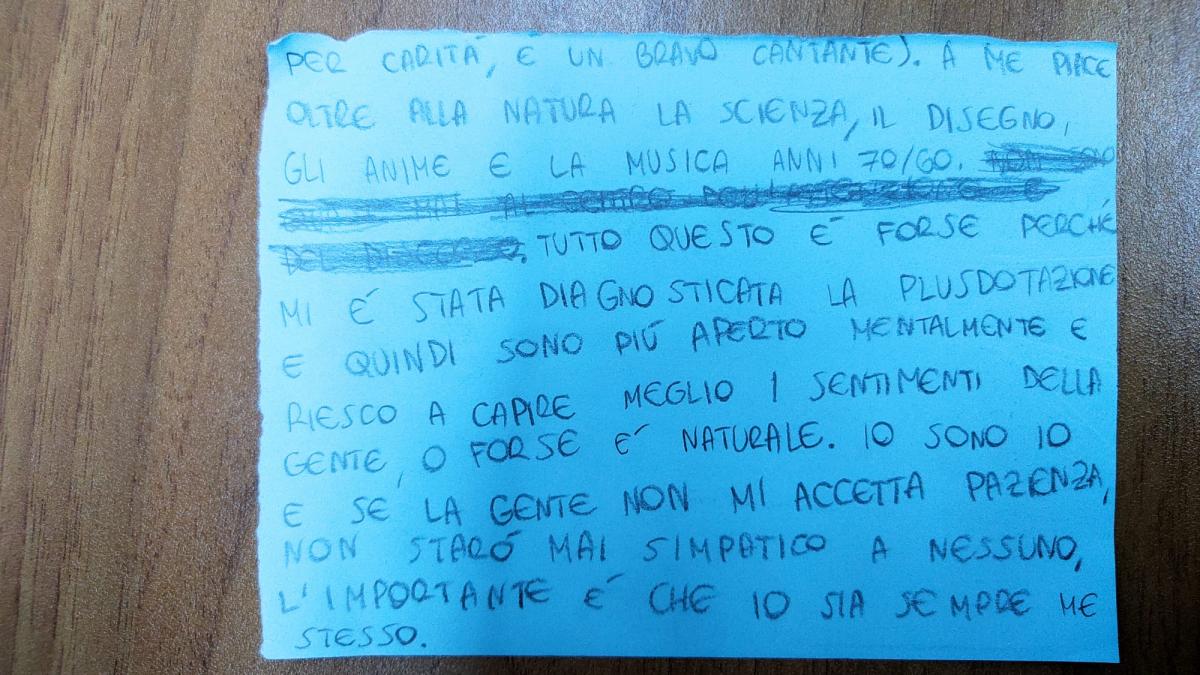 PER CARITÁ, É UN BRAVO CANTANTE). A ME PIACE
OLTRE ALLA NATURA LA SCIENZA, IL DISEGNO,
GLI ANIME E LA MUSICA ANNI 70/60. NON SONO
MAI AL
TUTTO QUESTO É FORSE PERCHÉ
MI É STATA DIAGNOSTICATA LA PLUSDOTAZIONE
E QUINDI SONO PIÚ APERTO MENTALMENTE E
RIESCO A CAPIRE MEGLIO I SENTIMENTI DELLA
GENTE, O FORSE É NATURALE. IO SONO IO
E SE LA GENTE NON MI ACCETTA PAZIENZA,
NON STARÓ MAI SIMPATICO A NESSUNO,
L'IMPORTANTE É CHE IO SIA SEMPRE ME
STESSO.